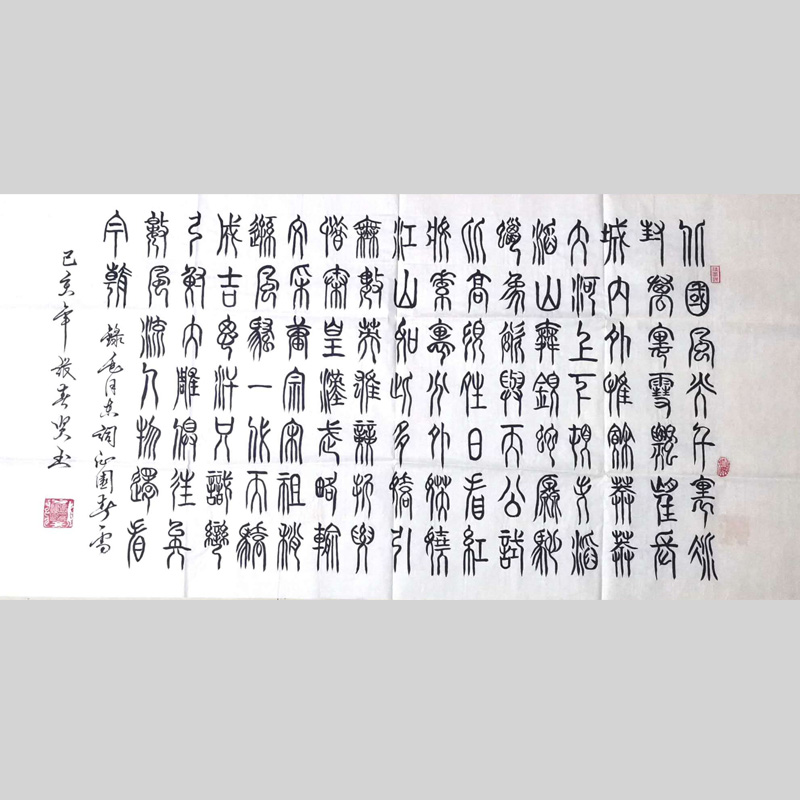 北國風光千裏冰
封萬裏雪飄望長
城内外惟餘莽莽
大河上下頓失滔
滔山舞銀蛇原馳
蠟象欲與天公試
比高須晴日看紅
妝素裹分外妖嬈
江山如此多嬌引
無數英雄競折腰
惜秦皇漢武略輸
文采唐宗宋祖稍
遜風騷一代天驕
成吉思汗只識彎
弓射大雕俱往矣
數風流人物還看
今朝
錄毛泽东詞沁園春雪
己亥年